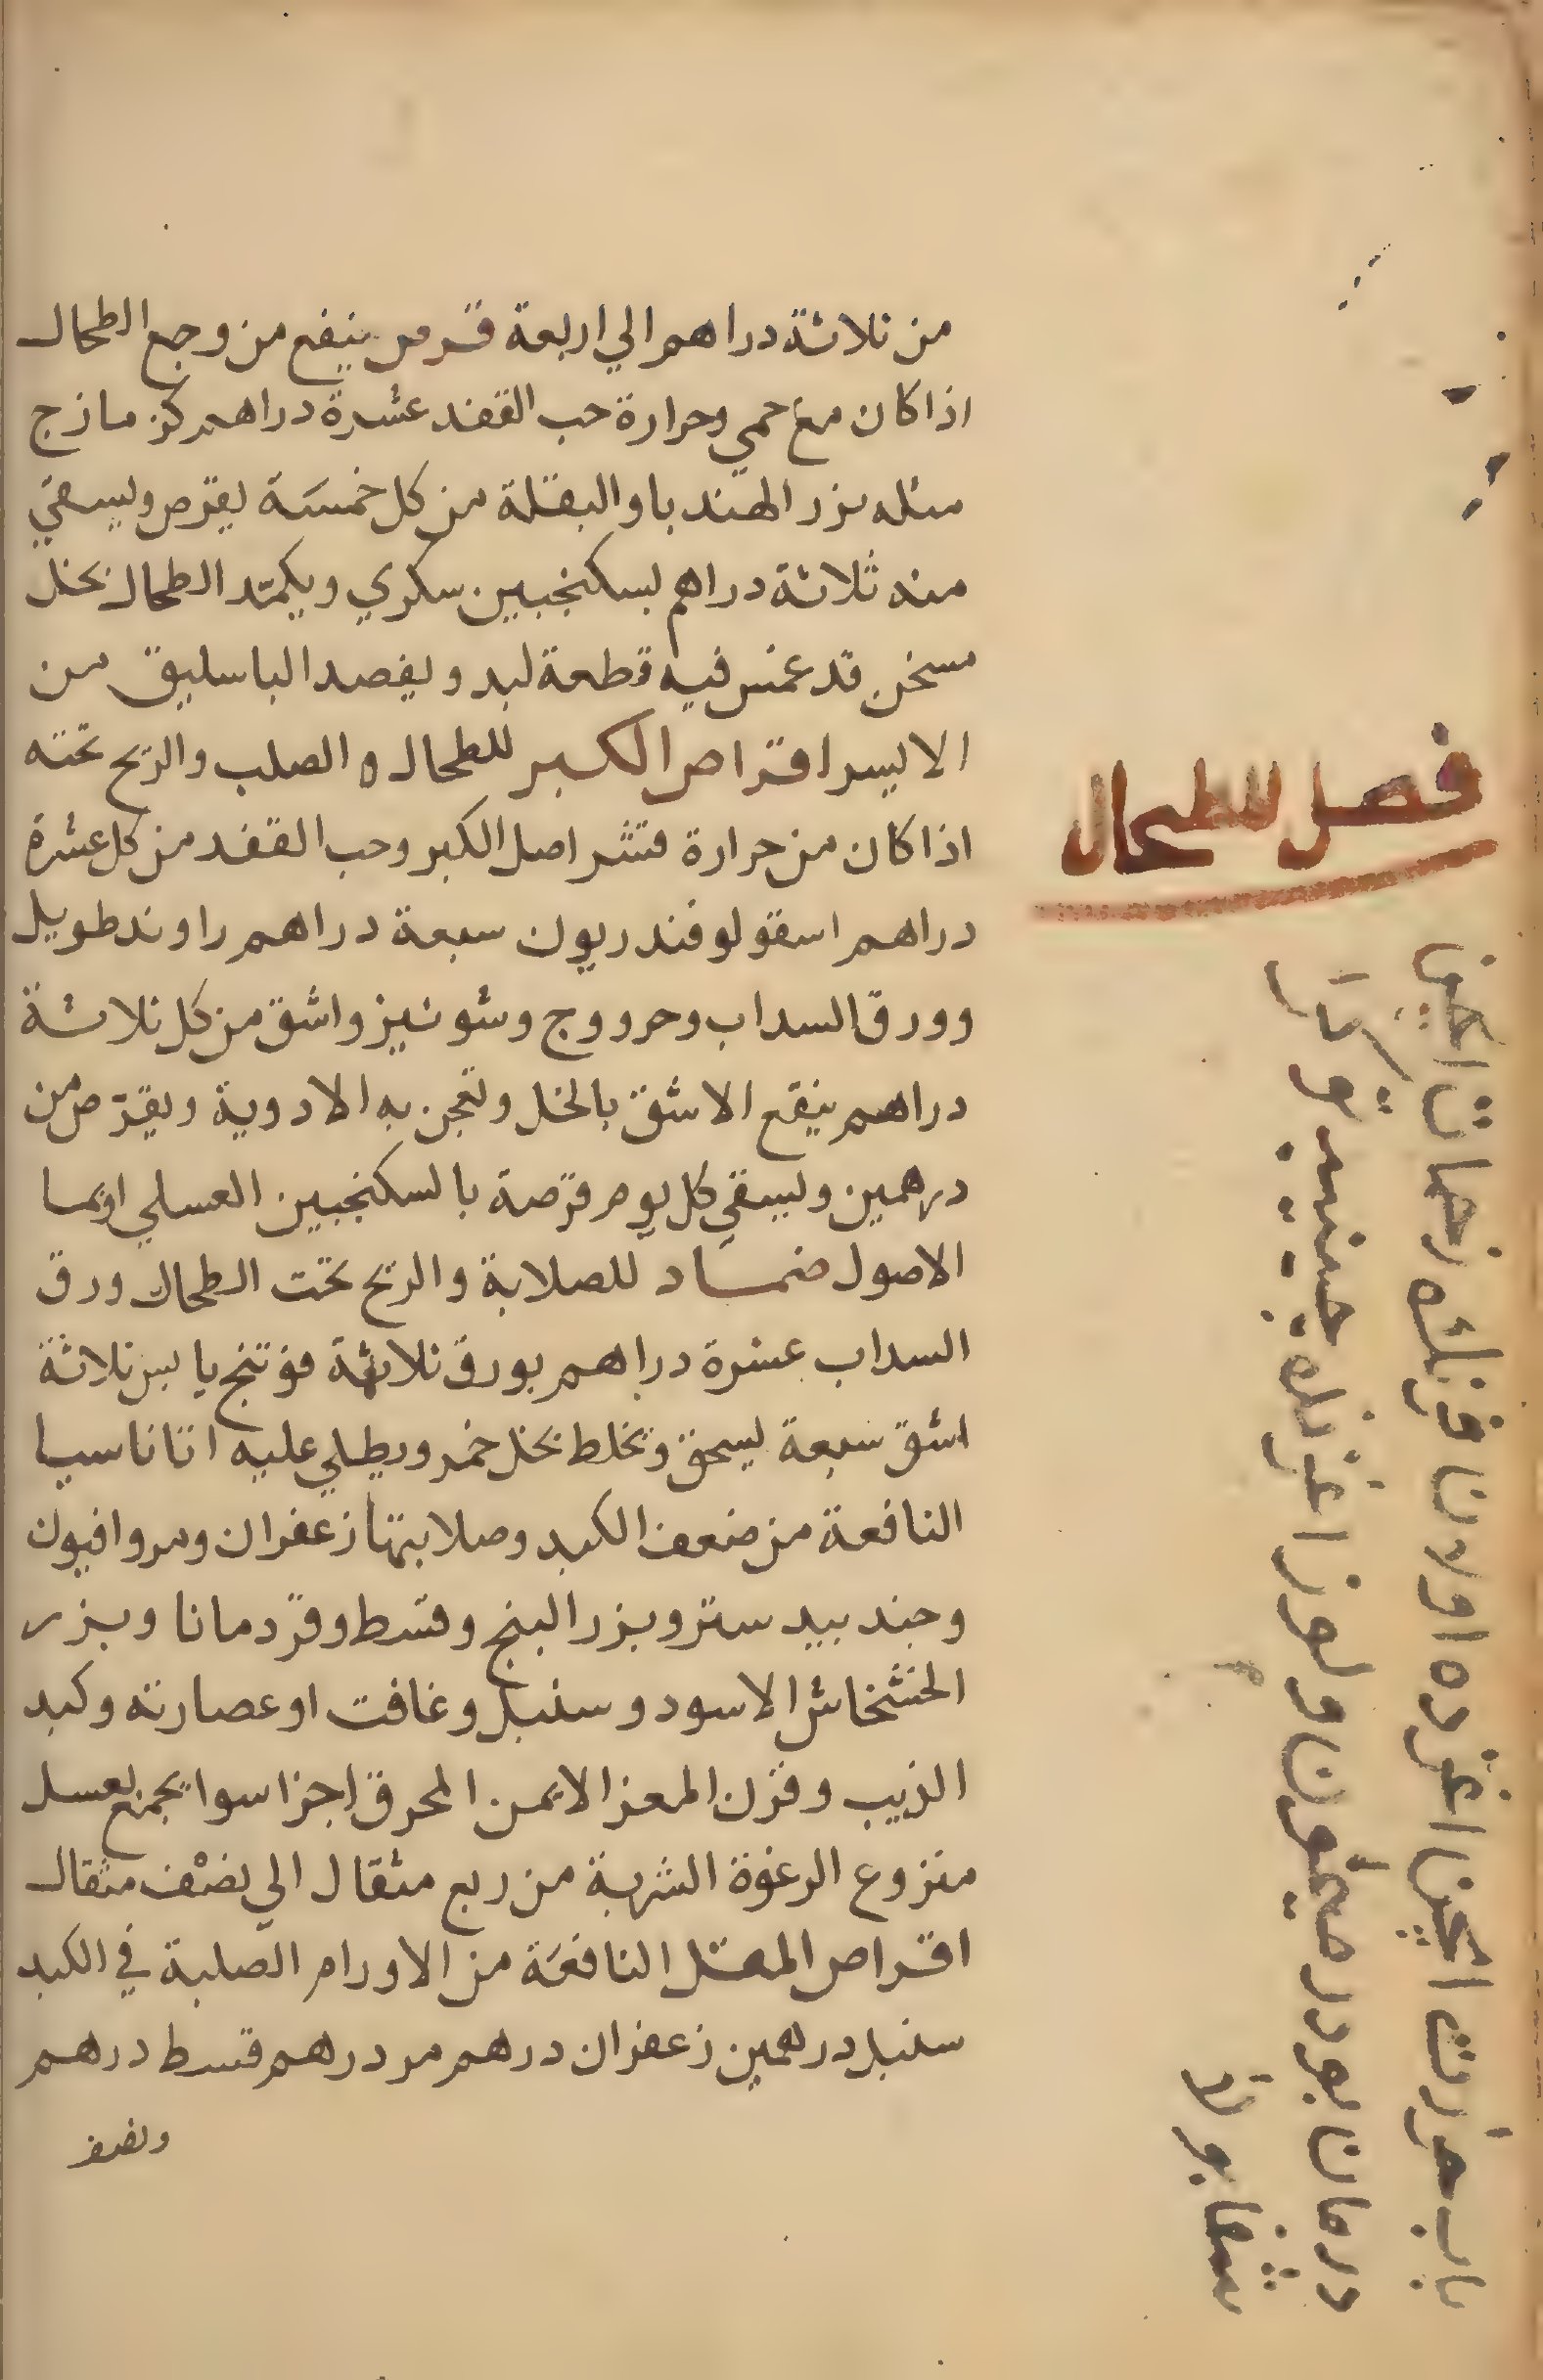 من ثلاثة دراهم الي اربعة قرص ينفع من وجع الطحال
اذا كان مع حمي وحرارة حب الفقد عشرة دراهم كزمازج
مثله بزر الهندبا والبقلة من كل خمسة يقرص ويسقي
منه ثلاثة دراهم بسكنجبين سكري ويكمد الطحال بخل
مسخن قد غمس فيه قطعة لبد ويفصد الباسليق من
الايسر اقراص الكبر للطحال الصلب والريح تحته
اذا كان من حرارة قشر اصل الكبر وحب الفقد من كل عشرة
دراهم اسقولوقندريون سبعة دراهم راوند طويل
وورق السداب وحر ووج وشونيز واشق من كل ثلاثة
دراهم ينقع الاشق بالخل وتعجن به الادوية ويقرص من
درهمين ويسقي كل يوم قرصة بالسكنجبين العسلي او بما
الاصول ضماد للصلابة والريح تحت الطحال ورق
السداب عشرة دراهم بورق ثلاثة فوتنج يابس ثلاثة
اشق سبعة يسحق وتخلط بخل خمر ويطلي عليه اثاناسيا
النافعة من ضعف الكبد وصلابتها زعفران ومر وافيون
وجند بيدستر وبزر البنج وقسط وقردمانا وبزر
الخشخاش الاسود وسنبل وغافت او عصارته وكبد
الذيب وقرن المعز الايمن المحرق اجزا سوا يجمع بعسل
منزوع الرغوة الشربة من ربع مثقال الي نصف مثقال
اقراص المقل النافعة من الاورام الصلبة في الكبد
سنبل درهمين زعفران درهم مر درهم قسط درهم
ونصف
فصل للطحال
باب حرارت ايچن اغزده اولان و زنلده زحمات ايچن
درمان بودر صچلون ولوز اغزنده چينيه توكرا
شفا بولا